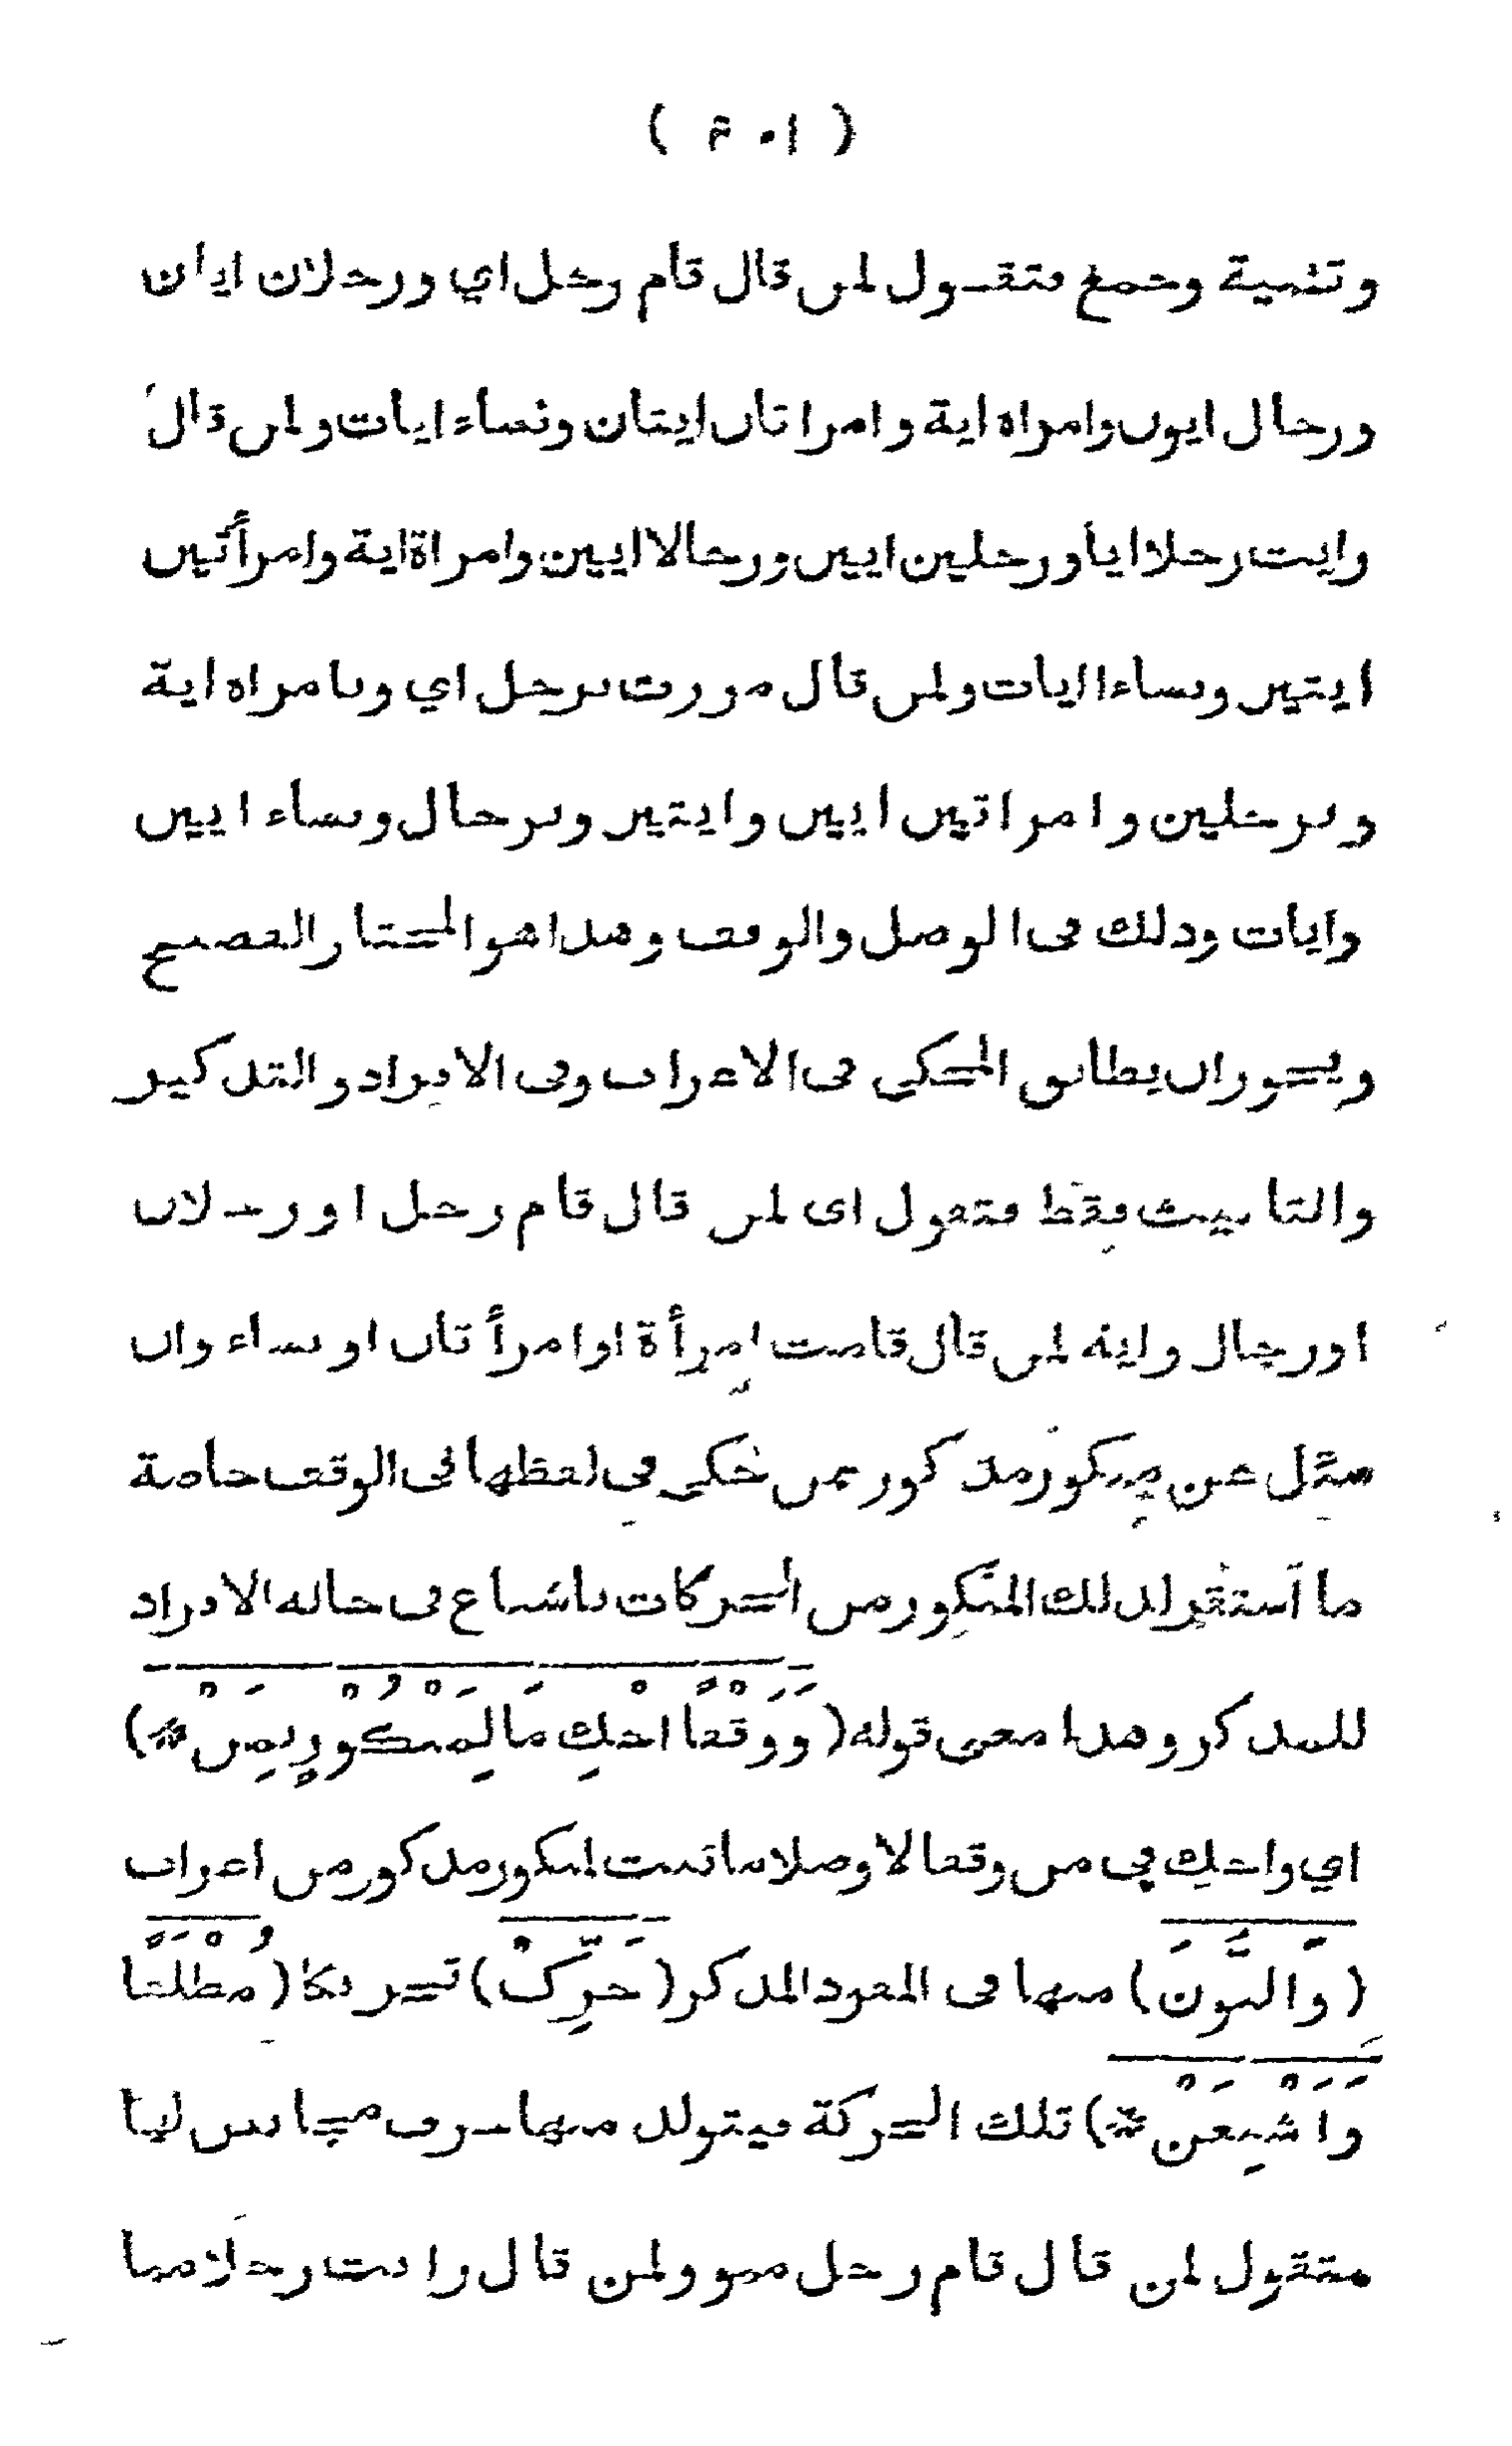 وتثنية وجمع فتقول لمن قال قام رجل اي ورجلان ايان
ورجال ايون وامراة اية وامراتان ايتان ونساء ايات ولمن قال
رايت رجلا ايا ورجلين ايين ورجالا ايين وامراة اية وامرأتين
ايتين ونساء ايات ولمن قال مررت برجل اي وبامراة اية
وبرجلين وامراتين ايين وايتين وبرجال ونساء ايين
وايات وذلك فى الوصل والوقف وهذا هو المختار الفصيح
ويجوز ان يطابق المحكي فى الاعراب وفى الافراد والتذكير
والتانيث فقط فتقول اى لمن قال قام رجل او رجلان
او رجال واية لمن قال قامت امرأة او امرأتان او نساء وان
سئل عن منكور مذكور بمن حكي في لفظها في الوقف خاصة
ما استقر لذلك المنكور من الحركات باشباع فى حالة الافراد
للمذكر وهذا معنى قوله (وَوَقْفًا احْكِ مَا لِمَنْكُوْرٍ بِمَنْ *)
اي واحك في من وقفا لا وصلا ما ثبت لمنكور مذكور من اعراب
(وَالنُّوْنَ) منها فى المفرد المذكر (حَرِّكْ) تحريكا (مُطْلَقًا
وَاَشْبِعَنْ *) تلك الحركة فيتولد منها حرف مجانس لها
فتقول لمن قال قام رجل منو ولمن قال رايت رجلا منا